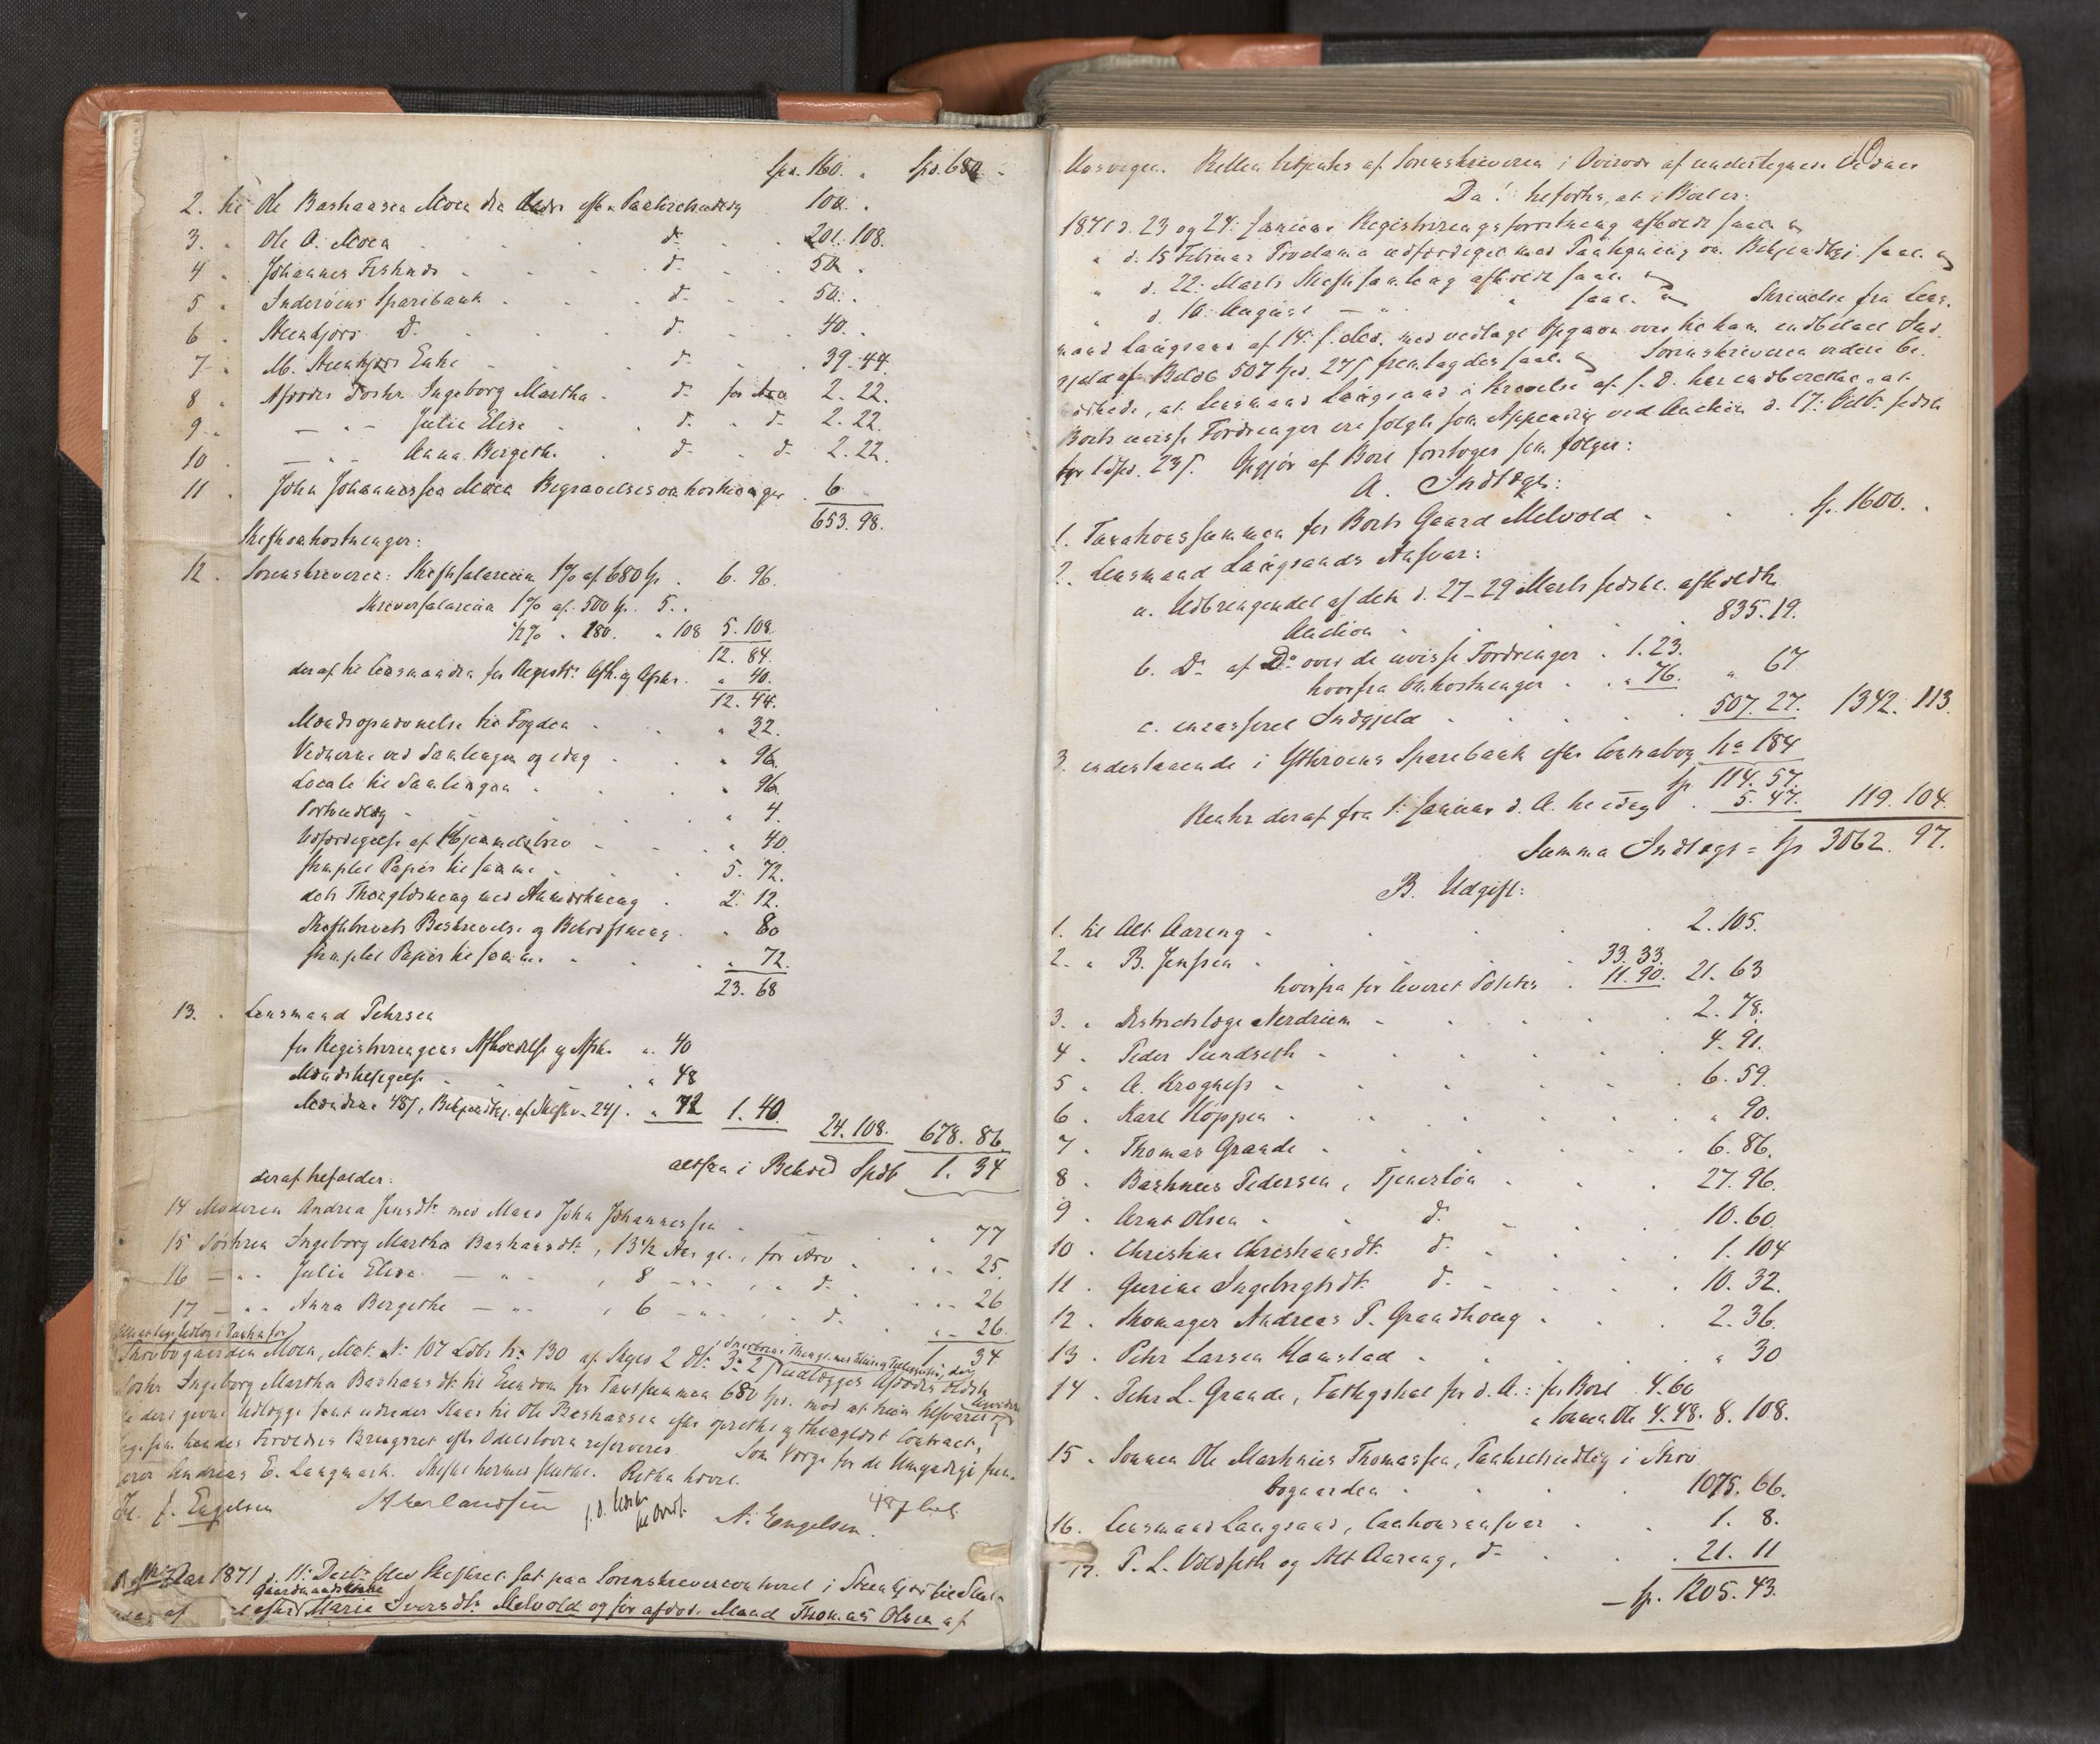 Spd. 160. „ Spd. 680 „
2. til Ole Bashaansen Moen efter Panterettighed 100. „
3. „ Ole A. Moen do 201. 108.
4 „ Johannes do 50 „
5 „ Inderöens Sparebank do 50. „
6 „ Steenkjærs D. do 40. „
7 „ M. Steenkjærs Enke do 39. 44.
8 „ Afdödes Dotter Ingeborg Martha do for Arv 2. 22.
9 „ — „ — Julie Elise do do 2. 22.
10 „ — „ — Anna Bergethe do do 2. 22.
11 „ John Johannessen Moen Begravelsesomkostninger 6
653. 98.
Skifteomkostninger:
12 „ Sorenskriveren: Skiftesalarium 1% af 680 Sp. 6. 96.
Skriversalarium 1% af 500 Sp. 5. „
½% „ 180. „ 108 5. 108
12. 84.
deraf til Lensmanden for Registr. Afh. og Afskr. „ 40.
12. 44.
Mænds opnævnelse til Fogden „ 32.
Vidnerne ved Samlingen og idag „ 96.
Locale til Samlingen „ 96.
Portoudlæg „ 4
Udfærdigelse af Hjemmelsbrev „ 40
stemplet Papir til samme 5. 72.
dets Thinglæsning med Anmærkning 2. 12.
Skiftebrevets Beskrivelse og Bekræftning „ 80
stemplet Papir til samme „ 72.
23. 68
13. „ Lensmand Pehrsen
for Registreringens Afholdelse og Afskr. „ 40
Mændstilsigelse „ 48
Mændene 48 s, Bekjendtg. af Skiftes. 24 s. „ 72 1. 40. 24. 108. 678. 86
altsaa i Behold Spd. 1. 34
deraf tilfalder:
14 Moderen Andrea Jensdtr. med Mand John Johannessen „ 77
15 Dottren Ingeborg Martha Bashaansdtr., 13½ Aar gl., for Arv „ 25.
16 — „ — Julie Elise — „ — , 8 — „ — , do „ 26
17 — „ — Anna Bergethe — „ — , 6 — „ — do „ 26.
1 34
Skovbogaarden Moen, Mat. No 107 Löbe No 130 af Skyld 2 Dl. 3 2 s udlægges Afdödes ældste
Dotter Ingeborg Martha Bashaansdtr. til Eiendom for Taxtsummen 680 Spd. mod at hun tilsvarer
de deri givne Udlægge samt udreder Kaar til Ole Bashaansen efter oprettet og thinglæst Contract,
ligesom hendes Forældres Brugsret efter Odelsloven reserveres. Som Værge for de Umyndige fun-
gerer Andreas E. Langmark. Skiftet hermed sluttet. Retten hævet.
J. Engelsen A. Engelsen.
Aar 1871 d. 11. Decbr. blev Skifteret sat paa Sorenskrivercontoret i Steenkjær til Slut-
Gaardmandsenke
efter Marie Iversdtr. Melvold og för afdöd. Mand Thomas Olsen af
Mosvigen. Retten betjentes af Sorenskriveren i Overvær af undertegnede Vidner
Da! tilförtes, at i Boet er:
1871 d. 23 og 24. Januar Registreringsforretning afholdt saal.
„ d. 15 Februar Proclama udfærdiget med Paategning om Bekjendtgj. saal.
„ d. 22. Marts Skiftesamling afholdt saal.
„ d. 10. August — „ — „ saal. Skrivelse fra Lens-
mand Langsand af 14. f. Md. med vedlagt Opgave over til ham indbetalt Ind-
gjeld af Beløb 507 Spd. 27 s fremlagdes saal. Sorenskriveren videre be-
mærkede, at Lensmand Langsand i Skrivelse af s. D. har indberettet, at
Boets uvisse Fordringer ere solgte som Appendix ved Auction d. 17. Octb. sidstl.
for 1 Spd. 23 s. Opgjör af Boet foretoges som fölger:
A. Indtægt:
1. Taxationssummen for Boets Gaard Melvold Sp. 1600. „
2. Lensmand Langsands Ansvar:
a. Udbringendet af den d. 27–29 Marts sidstl. afholdte
Auction 835. 19.
b. Do af Do over de uvisse Fordringer 1. 23.
hvorfra Omkostninger „ 76. „ 67
c. incasseret Indgjeld 507. 27. 1342. 113.
3. indestaaende i Ytteröens Sparebank efter Contrabog No 184
Sp. 114. 57.
Renter deraf fra 1. Januar d. A. til idag 5. 47. 119. 104.
Summa Indtægt = Sp 3062. 97.
B. Udgift:
1. til Alt Aareng 2. 105.
2. „ B. Jenssen 33. 33.
hvorfra for leveret Potetes 11. 90. 21. 63
3. „ Districtslæge Nerdrum 2. 78.
4 „ Peder Sundseth 4. 91.
5 „ A. Krogness 6. 59.
6 „ Karl Hoppen „ 90.
7 „ Thomas Grande 6. 86.
8 „ Bashnius Pedersen, Tjenestlön 27. 96.
9 „ Arnt Olsen do 10. 60.
10 „ Christine Christiansdtr. do 1. 104
11 „ Gurine Ingebrigtsdtr. do 10. 32.
12 „ Skomager Andreas P. Grandhoug 2. 36.
13 „ Pehr Larsen Hamstad „ 30
14 „ Pehr L. Grande, Fattigskat for d. A.: for Boet 4. 60
„ Sönnen Ole 4. 48. 8. 108.
15 „ Sönnen Ole Martinus Thomassen, Panterettighed i Skov-
bogaarden 1075. 66.
16. Lensmand Langsand, Cautionsansvar 1. 8.
17. P. L. Voldseth og Alt Aareng, do 21. 11
— Sp. 1205. 43.